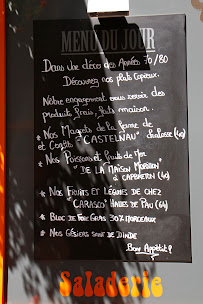 MENU DU JOUR
Dans une déco des Années 70/80
Découvrez nos plats copieux.
Nôtre engagement vous servir des
produits frais, faits maison.
* Nos Magrets de la ferme de
et Confits "CASTELNAU" (40)
* Nos Poissons et fruits de Mer
"DE LA MAISON
A CAPBRETON (40)
* Nos FRUITS ET LÉGUMES DE CHEZ
"CARASCO" HALLES DE PAU (64)
* BLOC DE FOIE GRAS 30% MORCEAUX
* NOS GÉSIERS SONT DE DINDE
Bon Appétit!
Saladerie